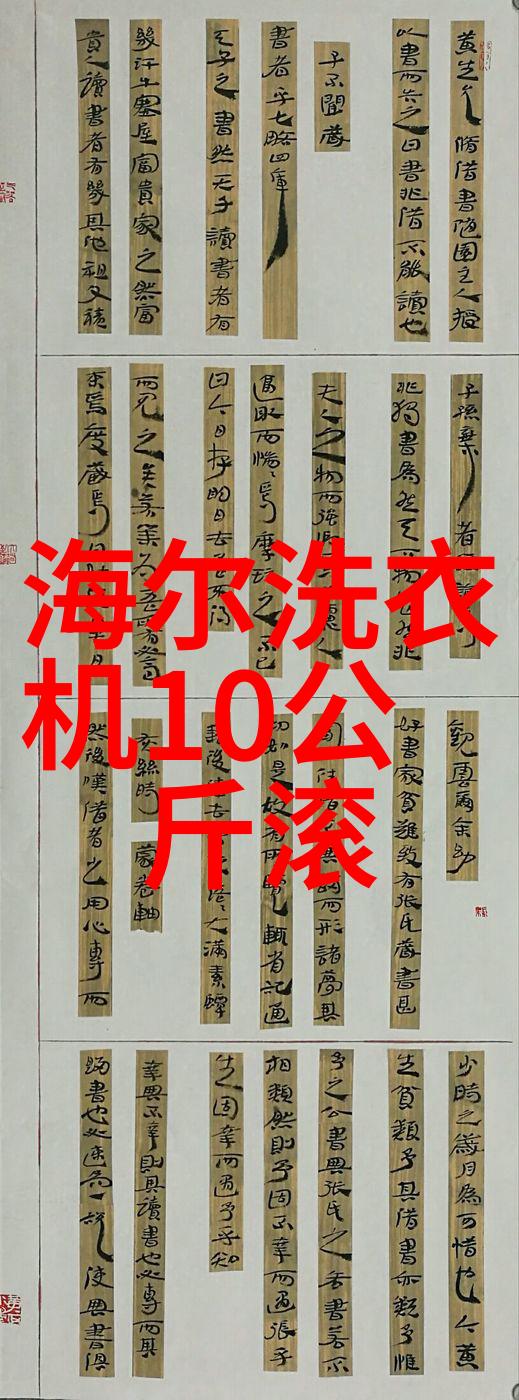 海尔洗衣
机10公
斤滚
黃生允脩借書隨園主人授
以書而告之曰書非借不能讀也
子不聞藏
書者乎七略四庫
天子之書然天子讀書者有
幾汗牛塞屋富貴家之然富
貴人讀書者有幾其他祖父積
子孫棄者
非獨書為然天下物皆然非
夫人之物而強假焉必慮人
逼取而惴惴焉摩玩之不已
曰今日存明日去吾不得
而見之矣若業為吾所有必高
束焉庋藏焉曰姑俟異日
觀雲爾余幼
好書家貧難致有張氏藏書甚
往借不與歸而形諸夢其
切如是故有所覽輒省記通
籍後俸去書來落落大滿素蟫
灰絲時蒙卷軸
然後嘆借者之用心專而
少時之歲月為可惜也今黃
生貧類予其借書亦類予惟
予之公書與張氏之吝書若不
相類然則予固不幸而遇張乎
生固幸而遇予乎知
幸與不幸則其讀書也必專而其
歸書也必速為一說使與書俱